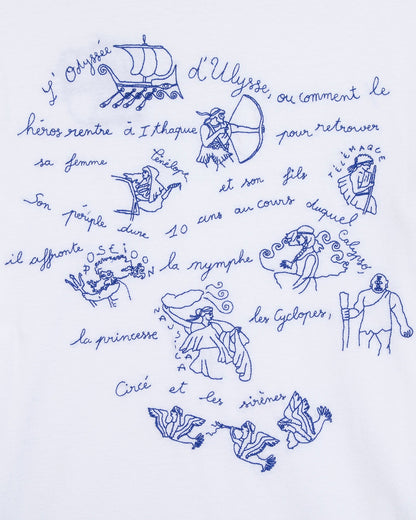 L'Odyssée d'Ulysse, ou comment le
héros rentre à Ithaque pour retrouver
sa femme Pénélope et son fils TÉLÉMAQUE
Son périple dure 10 ans au cours duquel
il affronte POSEIDON la nymphe Calypso
la princesse NAUSICAA les Cyclopes,
Circé et les sirènes